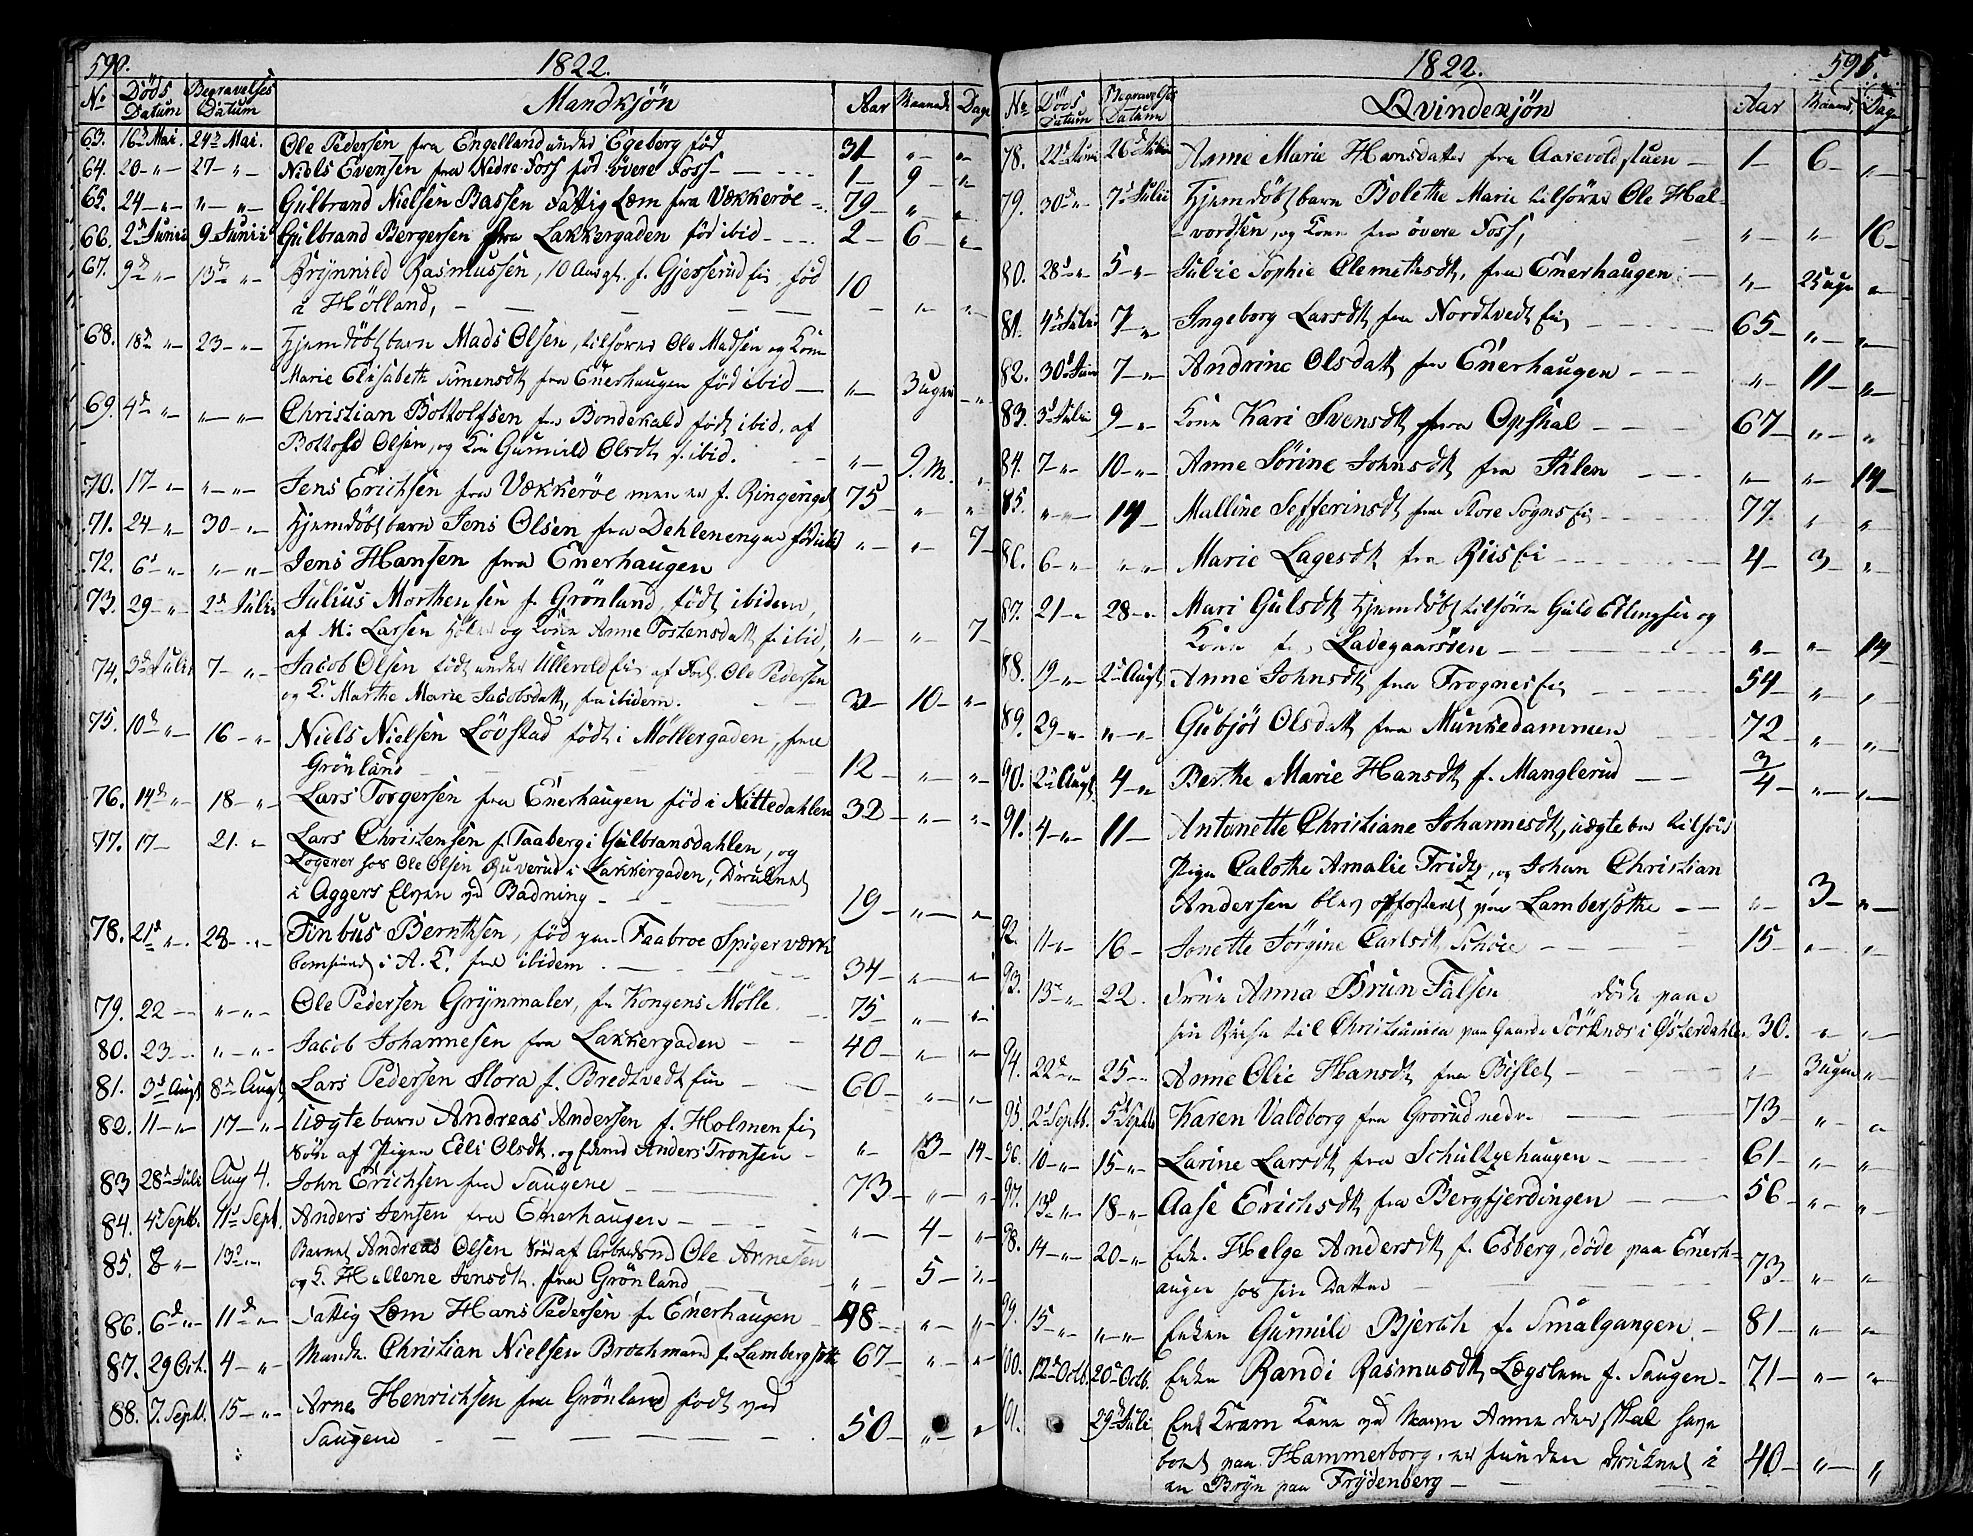 590.
1822.
No Döds Datum Begravelses Datum Mandkjön Aar Maaned Dage
63. 16de Mai. 24de Mai. Ole Pedersen fra Engelland under Egeberg född 31 " "
64. 20 " 27 " Niels Evensen fra Nedre Foss föd övere Foss 1 9 "
65. 24 " " " Gulbrand Nielsen Bassen Fattig Lem fra Vækkeröe 79 " "
66. 2d Junii 9 Junii Gulbrand Bergersen fra Lakkergaden föd ibid 2 6 "
67. 9de " 15de " Brynnild Rasmussen, f. Gjesserud Ei, föd 10
i Hölland, " "
68. 18de " 23 " Hjemdöbt barn Mads Olsen, tilhörer Ole Madsen og Kone
Marie Elisabeth Simensdt fra Enerhaugen föd ibid " 3 uger "
69. 4de " " " Christian Bottolfsen fra födt ibid, af
Bottolf Olsen, og Kone Gunnild Olsdt f. ibid. " 9 M. "
70. 17 " " " Jens Erichsen fra Vækkeröe men er f. Ringeriget 75 " "
71. 24 " 30 " Hjemdöbt barn Jens Olsen fra Dehlenengen föd ibid " " 7
72. 6d " " " Jens Hansen fra Enerhaugen
73. 29 " 2d Julii Julius Morthensen f. Grönland, födt ibidem,
af M: Larsen og Kone Anne Tostensdatt f. ibid, " " 7
74. 3de Julii 7 " Jacob Olsen födt under Ullevold Ei af Ole Pedersen
og K. Marthe Marie Jacobsdatt, fra ibidem. 10 "
75. 10de " 16 " Niels Nielsen Lövstad födt i Möllergaden, fra
Grönland 12 " "
76. 14de " 18 " Lars Torgersen fra Enerhaugen föd i Nittedahlen 32 " "
77. 17 21 " Lars Christensen f. Faaberg i Gulbransdahlen, og
Logerer hos Ole Olsen i Lakkergaden, Druknet
i Aggers Elven ved Badning 19 " "
78. 21d " 28 " Finbus Bernthsen, föd paa Faabroe Spigerværk
i A. fra ibidem. 34 " "
79. 22 " " Ole Pedersen Grynmaler, fra Kongens Mölle. 75 " "
80. 23 " " Jacob Johannesen fra Lakkergaden 40 " "
81. 3d Augt 8de Augt Lars Pedersen Slora f. Bredtvedt Eie 60 " "
82. 11 " 17 " Uægte barn Andreas Andersen f. Holmen Ei
Sön af Pigen Edli Olsdt. og Anders Tronsen " 13 14
83 28de Juli Aug 4. John Erichsen fra Saugene 73 " "
84. 4d Septb. 11d Sept. Anders Jensen fra Enerhaugen " 4 "
85. 8 " 13d " Barnet Andreas Olsen Sön af Arbedsmd Ole Arnesen
og K. Hellene Jensdt. fra Grönland " 5 "
86. 6d " 11d " Fattig Lem Hans Pedersen f. Enerhaugen 48 " "
87. 29 Oct. 4 " Christian Nielsen Brochmand f. Lambergsöt 67 " "
88. 7. Sept. 15 " Arne Henrichsen fra Grönland födt ved
Saugene 50 " "
1822.
595.
No Döds Datum Begravelses Datum Qvindekjön Aar Maaned, Dage
78. 22de Juni 26de Julii Anne Marie Hansdatter fra Aarevoldstuen 1 6 "
79. 30d " 7d Julii Hjemdöbt barn Bolethe Marie tilhörer Ole Hal-
vordsen, og Kone fra övere Foss, " " 16
80. 28d " 5 " Julie Sophie Clemetsdt, fra Enerhaugen " 25 uger "
81. 4d Julii 7 " Ingeborg Larsdt fra Nordtvedt Ei 65 " "
82. 30d Juni 7 " Andrine Olsdatt fra Enerhaugen " 11 "
83. 3d Julii 9 " Konen Kari Svensdt fra Opshal 67 " "
84. 7 " 10 " Anne Sörine Johnsdt fra " " 14
85. " " 14 Malline Sefferinsdt fra Store Sogns Ei 77. " "
86. 6 " " " Marie Lagesdt fra Riis Ei 4 3 "
87. 21 " 28 " Mari Gulsdt Hjemdöbt tilhörer Guld Ellingsen og
Kone fra Ladegaarsöen " " 14
88. 19 " 2d Augt Anne Johnsdt fra Frognes Ei 54 " "
89. 29 " " " Gubjör Olsdatt fra Munkedammen 72 " "
90. 2d Augt. 4 " Berthe Marie Hansdt f. Manglerud 3/4 " "
91. 4 " 11 Antonette Christiane Johannesdt, uægte ba tilhörer
Pigen Calothe Amalie Fridtz, og Johan Christian
Andersen blev opfostret paa Lambersöthe " 3 "
92. 11 " 16 Jonette Jörgine Carlsdt Schöie 15 " "
93. 13de " 22. Frue Anna Brun Falsen döde paa
sin Reise til Christiania paa Gaarden i Österdahlen 30. " "
94. 22de " 25 Anne Olie Hansdt fra Bislet " 3 uger "
95. 2d Septb. 5d Septb Karen Valdborg fra Grorud nedre 73 " "
96. 10 " 15 " Larine Larsdt fra Schultzehaugen 61 " "
97. 13d " 18 " Aase Erichsdt fra Bergfjerdingen 56 " "
98. 14 " 20 " Enke. Helge Andersdt f. Esberg, döde paa Enerh-
augen hos sin Datter 73 " "
99. 15 " " " Enken Gunnild Bjerch f. Smalgangen 81 " "
100. 12d Octb. 20d Octb. Enke Randi Rasmusdt Lægslem f. Saugen 71 " "
101. 29de Juli Kone ved Navn Anne der skal have
boet paa Hammerborg, er funden druknet i
en Brøn paa Frydenberg 40 " "